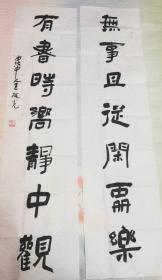 無事且從閑處樂
有書時嚮靜中觀